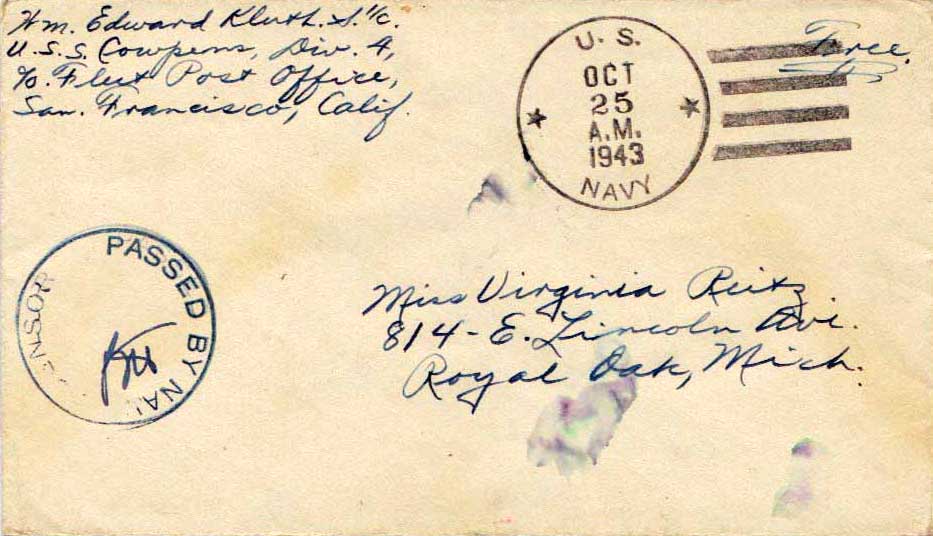 Wm. Edward Kluth. S. 1/c.
U.S.S. Cowpens, Div. 4,
℅ Fleet Post Office,
San. Francisco, Calif.
U. S.
OCT
25
A.M.
1943
NAVY
Free.
PASSED BY NA
ENSOR
Miss Virginia Reitz
814-E. Lincoln Ave.
Royal Oak, Mich.